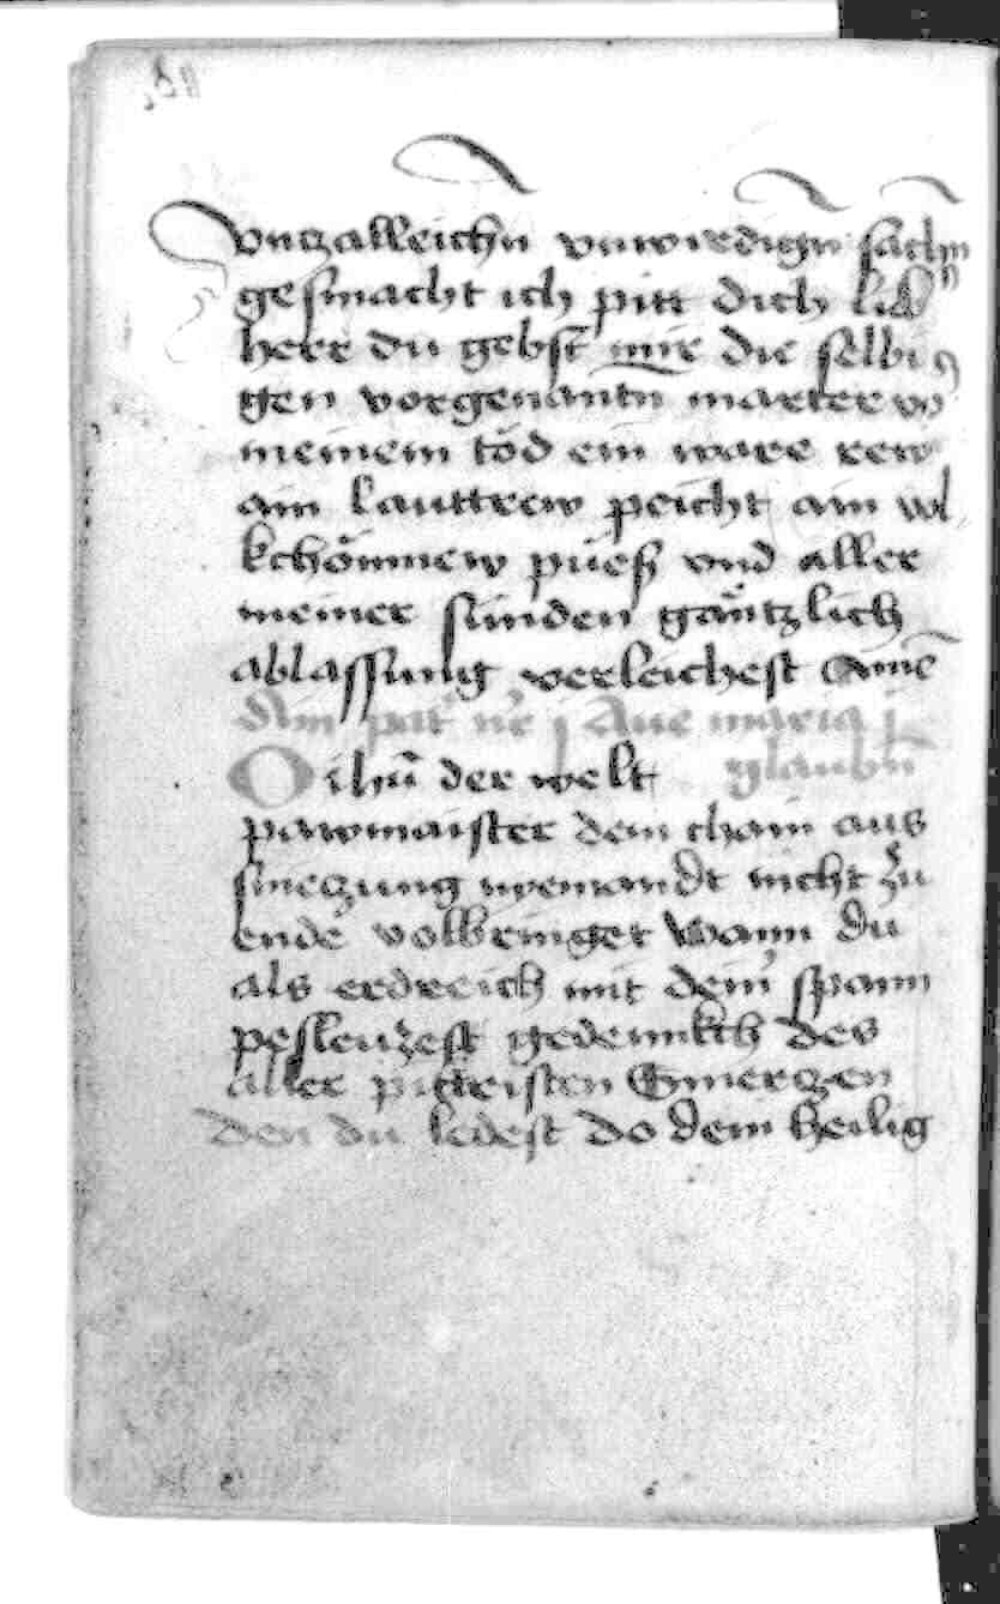 vntzalleichn̄ vnwirdign̄ sachn̄
gesmacht ich pitt dich lieb
herr du gebst mir die selbi
gen vorgenantn̄ marter vo
meinem töd ein ware rew
ain lauttrew peicht ain vol
kchömmew pües vnd aller
meiner sünden gäntzlich
ablassung verleichest Amē
pat nr̄ j Aue maria j
O ihū der welt glaubn̄
pawmaister dem chain aus
meczung nyemandt nicht zu
ende volbringer Wann du
als erdreich mit dein spann
peslewzest gedennkch des
aller pittristen Smerczen
den du ledest do dein heilig